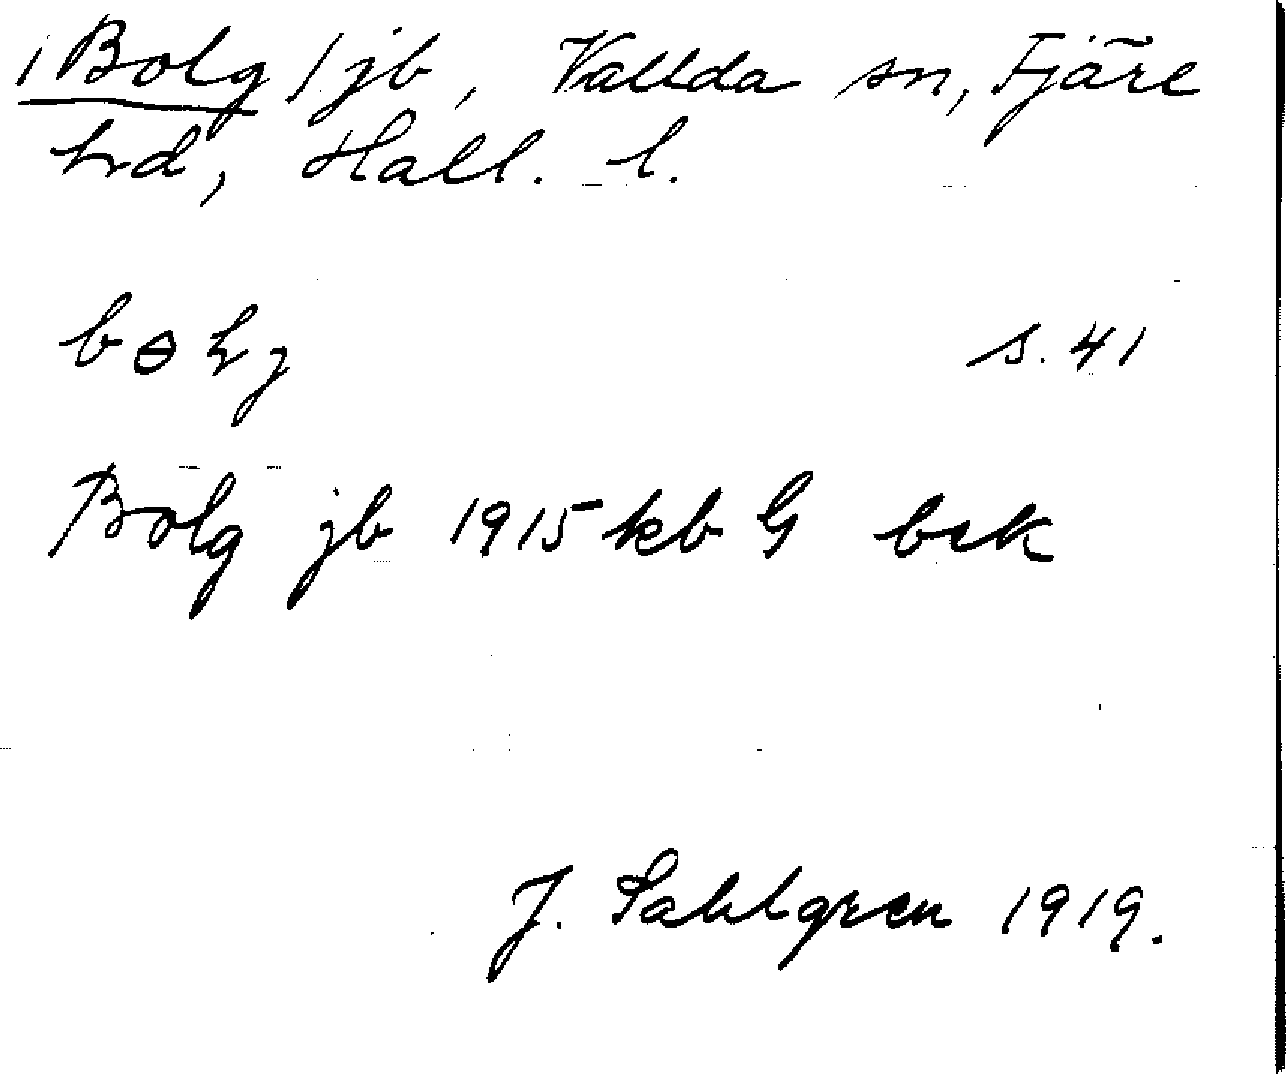 /Bolg/ jb, Vallda sn, Fjäre
hrd, Hall. l.
s. 41
Bolg jb 1915 kb G bek
J. Sahlgren 1919.